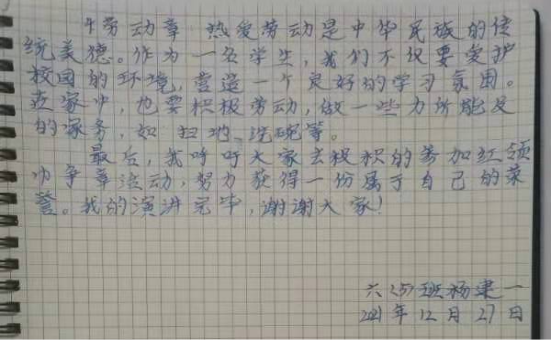 牛劳动章 热爱劳动是中华民族的传
统美德。作为一名学生，我们不仅要爱护
校园的环境，营造一个良好的学习氛围。
在家中，也要积极劳动，做一些力所能及
的家务，如扫地、洗碗等。
最后，我呼吁大家去积积的参加红领
巾争章活动，努力获得一份属于自己的荣
誉。我的演讲完毕，谢谢大家！
六（5）班杨建一
2021年12月27日